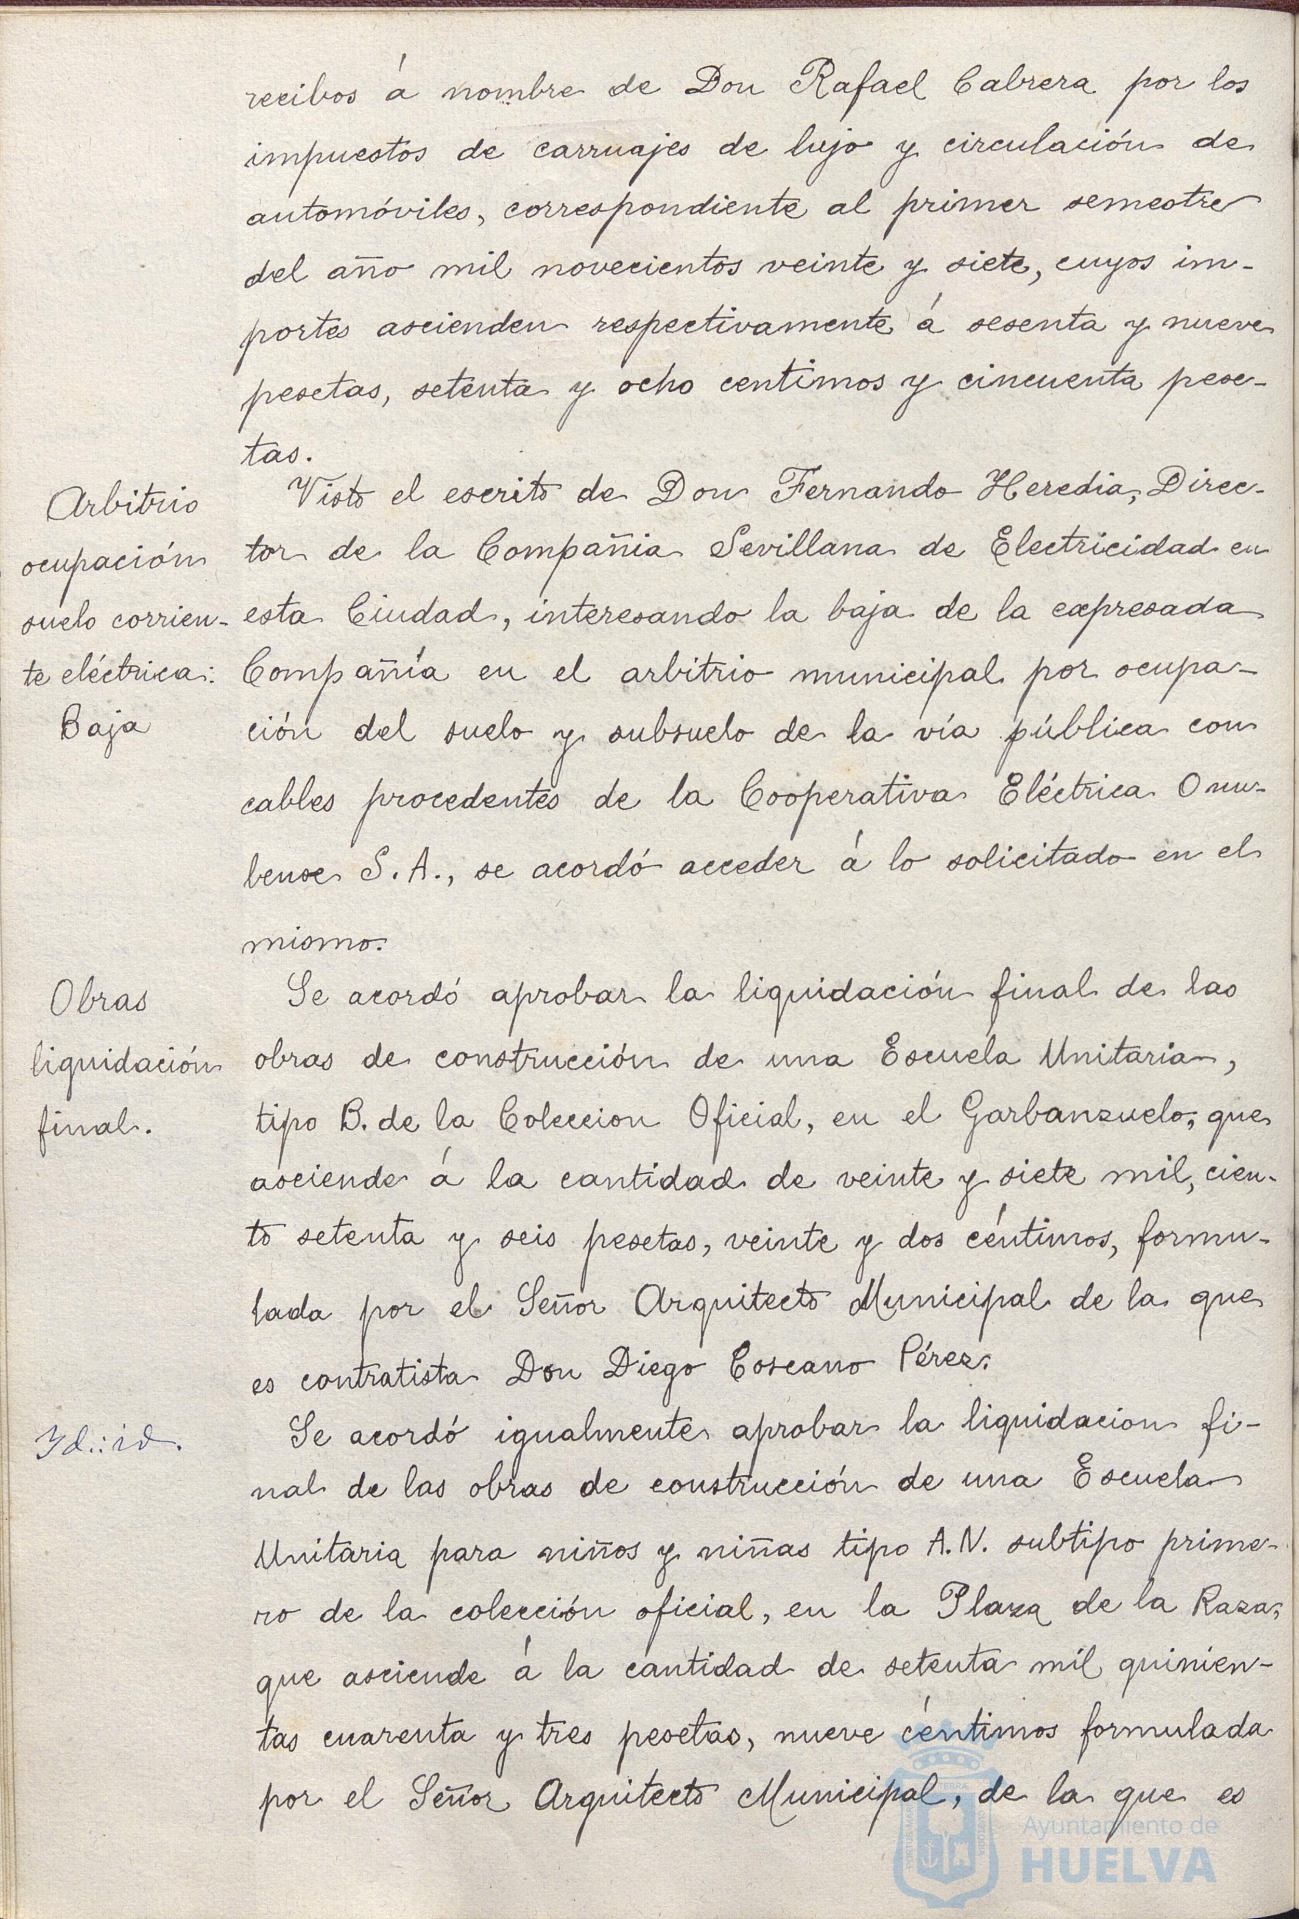 recibos á nombre de Don Rafael Cabrera por los
impuestos de carruajes de lujo y circulación de
automóviles, correspondiente al primer semestre
del año mil novecientos veinte y siete, cuyos im-
portes ascienden respectivamente á sesenta y nueve
pesetas, setenta y ocho centimos y cincuenta pese-
tas.
Arbitrio
ocupación
suelo corrien-
te eléctrica:
Baja
Visto el escrito de Don Fernando Heredia, Direc-
tor de la Compañia Sevillana de Electricidad en
esta Ciudad, interesando la baja de la expresada
Compañía en el arbitrio municipal por ocupa-
ción del suelo y subsuelo de la vía pública con
cables procedentes de la Cooperativa Eléctrica Onu-
bense S.A., se acordó acceder á lo solicitado en el
mismo.
Obras
liquidación
final.
Se acordó aprobar la liquidación final de las
obras de construcción de una Escuela Unitaria,
tipo B. de la Coleccion Oficial, en el Garbanzuelo, que
asciende á la cantidad de veinte y siete mil, cien-
to setenta y seis pesetas, veinte y dos céntimos, formu-
lada por el Señor Arquitecto Municipal de la que
es contratista Don Diego Toscano Pérez.
Id.: id.
Se acordó igualmente aprobar la liquidacion fi-
nal de las obras de construcción de una Escuela
Unitaria para niños y niñas tipo A.N. subtipo prime-
ro de la colección oficial, en la Plaza de la Raza,
que asciende á la cantidad de setenta mil quinien-
tas cuarenta y tres pesetas, nueve céntimos formulada
por el Señor Arquitecto Municipal, de la que es
Ayuntamiento de
HUELVA